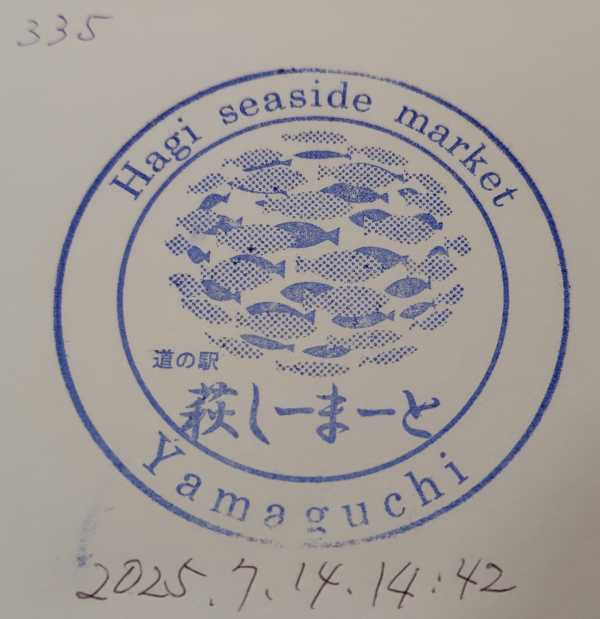 335
Hagi seaside market
道の駅
萩しーまーと
Yamaguchi
2025.7.14.14:42